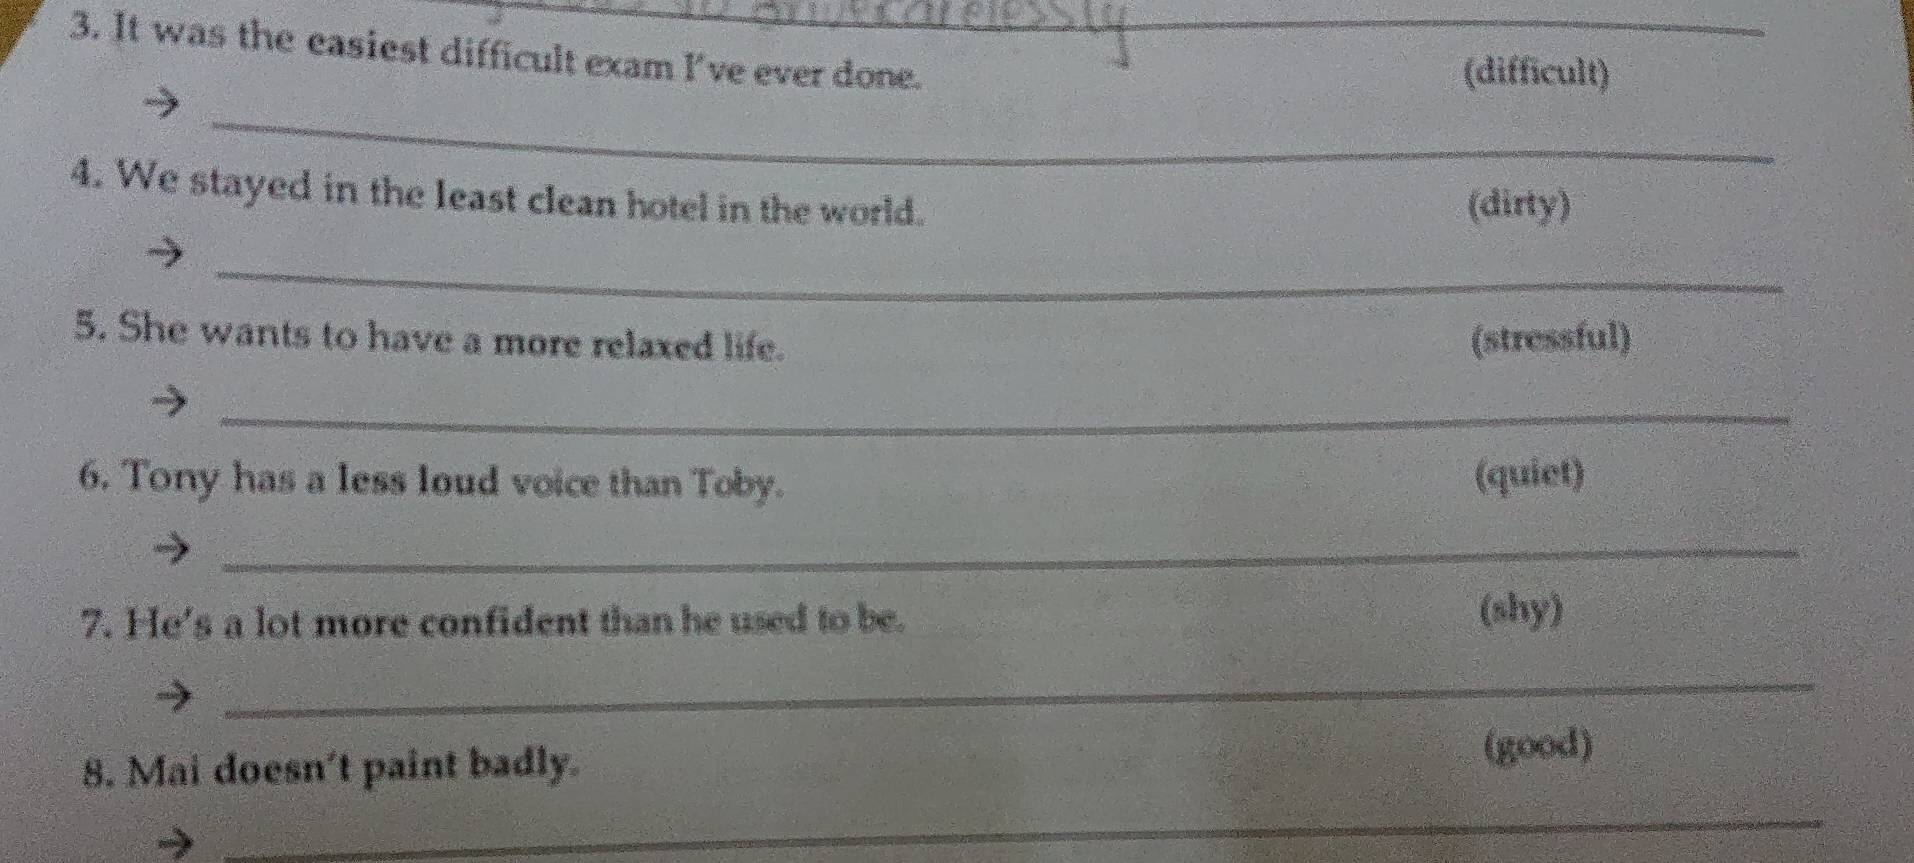 to drive carelessly
3. It was the easiest difficult exam I've ever done. (difficult)
→
4. We stayed in the least clean hotel in the world. (dirty)
→
5. She wants to have a more relaxed life. (stressful)
→
6. Tony has a less loud voice than Toby. (quiet)
→
7. He's a lot more confident than he used to be. (shy)
→
8. Mai doesn't paint badly. (good)
→